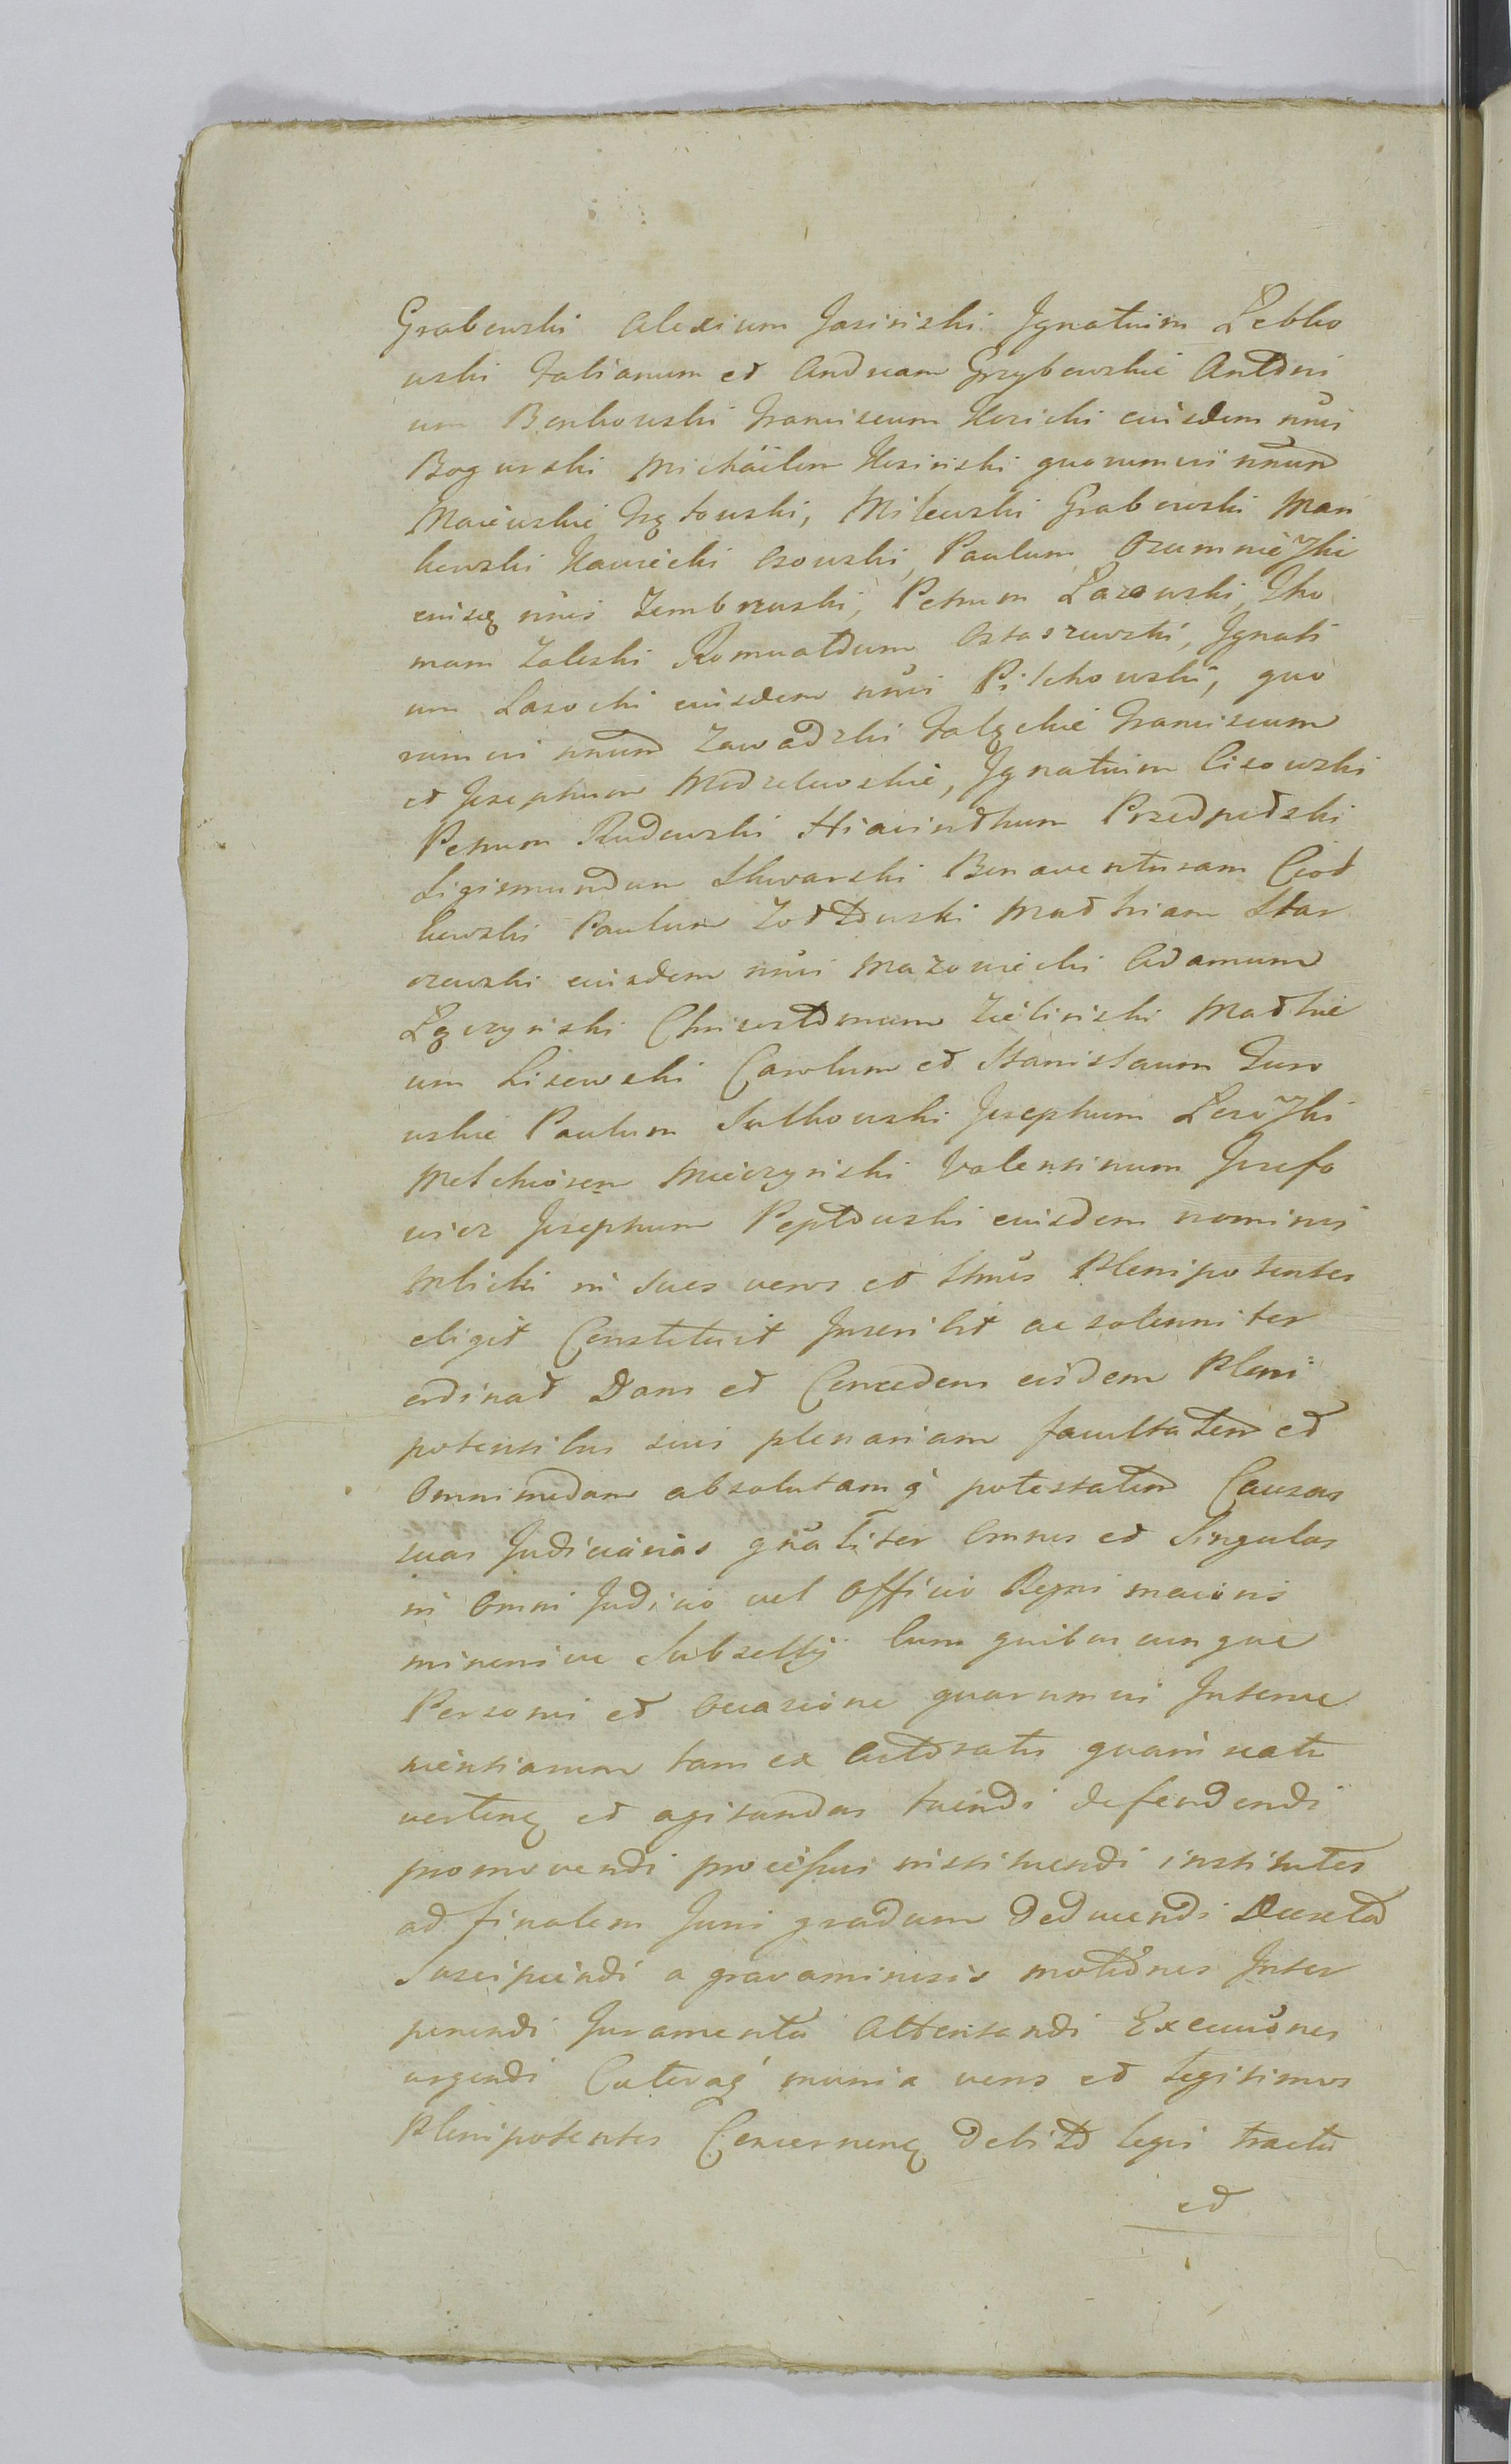 Grabowski Alexium Jasinski Ignatium Łebko
wski Fabianum et Andream Grzybowskie Antoni
um Bonkowski Franciscum Kosicki eiusdem nnis
Bogurski Michäelem Kosinski quorumvis nnum
Maiewskie Frętowski, Milewski Grabowski Man
kowski Nawiecki Osowski, Paulum
eiusq nnis Zembrzuski, Petrum Łazowski, Tho
mam Zaleski Romualdum Ostaszewski, Ignati
um Lasocki eiusdem nnis Pilchowski, quo
rumvis nnum Zawadzki Falęckie Franciscum
et Josephum Modzelewskie, Ignatium Cisowski
Petrum Rudowski Hiacinthum Przedpełski
Sigismundum Skwarski Bonaventuram Cioł
kowski Paulum Mathiam Star
ozewski eiusdem nnis Mazowiecki Adamum
Łączynski Chrisostomum Zielinski Mathe
um Lisewski Carolum et Stanislaum Zuro
wskie Paulum Sutkowski Josephum
Melchiorem Mieczynski Valentinum Jozefo
wicz Josephum Peptowski eiusdem nominis
Mlicki in suos veros et Ltmos Plenipotentes
eligit Constituit Inscribit ac solenniter
ordinat Dans et Concedens eisdem Pleni
potentibus suis plenariam facultatem et
Omnimodam absolutamq potestatem Causas
suas Judiciarias gnaliter Omnes et Singulas
in Omni Judicio vel Officio Regni maioris
minorisve Subsellij Cum quibuscunque
Personis et Occasione quarumvis Interve
nientiarum tam ex Actoratu quam reatu
verteng et agitandas tuendi defendendi
promovendi processus instituendi institutos
ad finalem Juris gradum deducendi Decreta
Suscipiendi a gravaminosis motiones Inter
ponendi Juramenta Attentandi Execuiones
urgendi Caeteraq munia veros et legitimos
Plenipotentes Concerneng debito legis tractu
et